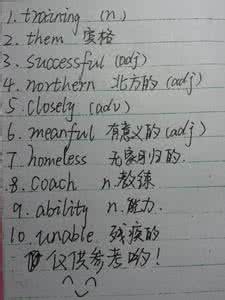 1. training (n)
2. them 宾格
3. successful (adj)
4. northern 北方的 (adj)
5. closely (adv)
6. meanful 有意义的 (adj)
7. homeless 无家可归的.
8. coach n.教练
9. ability n.能力.
10. unable 残疾的
仅供参考哟!